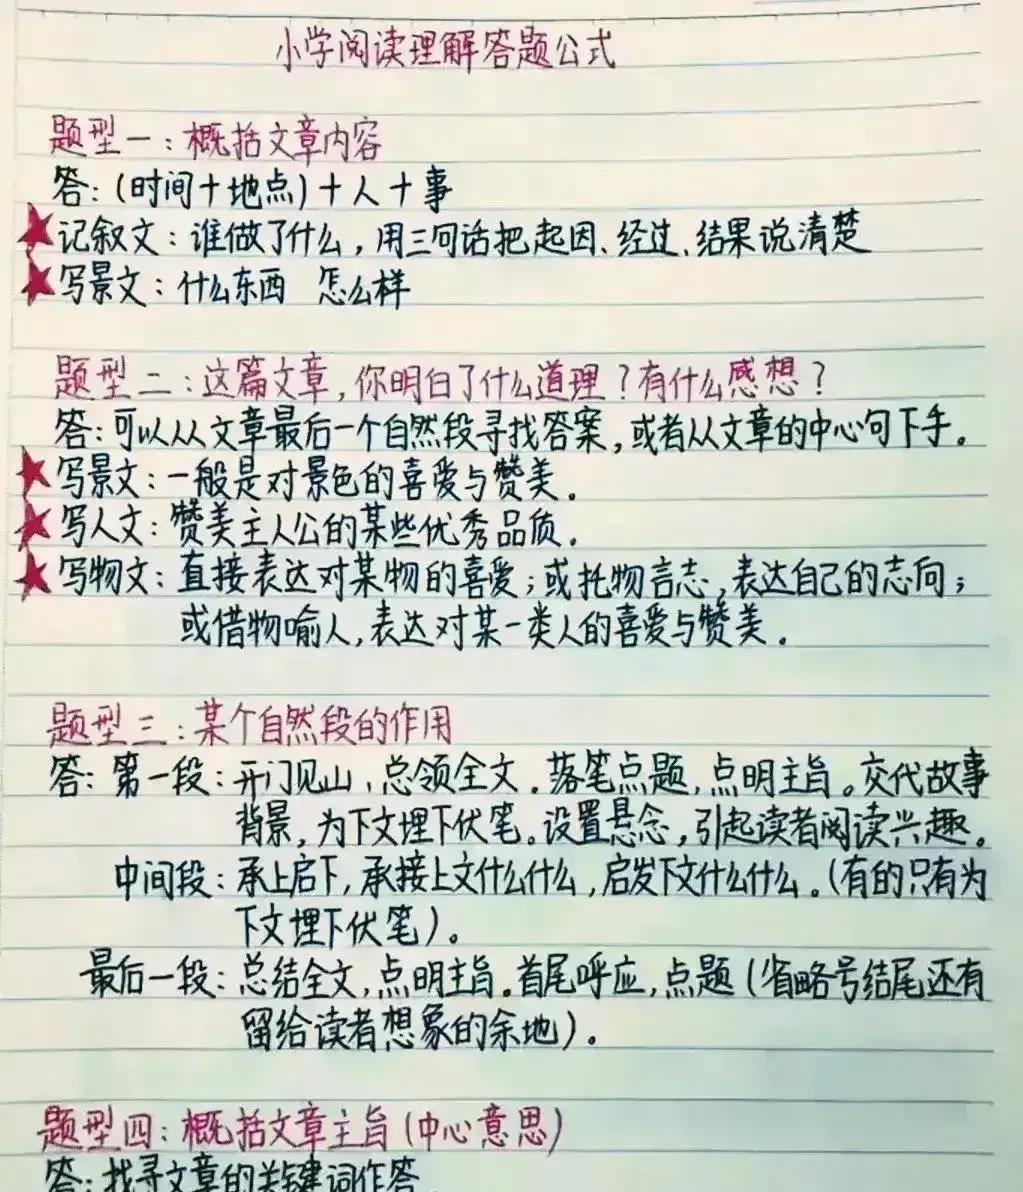 小学阅读理解答题公式
题型一：概括文章内容
答：(时间+地点)+人+事
★记叙文：谁做了什么，用三句话把起因、经过、结果说清楚
★写景文：什么东西 怎么样
题型二：这篇文章，你明白了什么道理？有什么感想？
答：可以从从文章最后一个自然段寻找答案，或者从文章的中心句下手。
★写景文：一般是对景色的喜爱与赞美。
★写人文：赞美主人公的某些优秀品质。
★写物文：直接表达对某物的喜爱；或托物言志，表达自己的志向；
或借物喻人，表达对某一类人的喜爱与赞美。
题型三：某个自然段的作用
答：第一段：开门见山，总领全文。落笔点题，点明主旨。交代故事
背景，为下文埋下伏笔。设置悬念，引起读者阅读兴趣。
中间段：承上启下，承接上文什么什么，启发下文什么什么。(有的只有为
下文埋下伏笔)。
最后一段：总结全文，点明主旨。首尾呼应，点题(省略号结尾还有
留给读者想象的余地)。
题型四：概括文章主旨(中心意思)
答：找寻文章的关键词作答